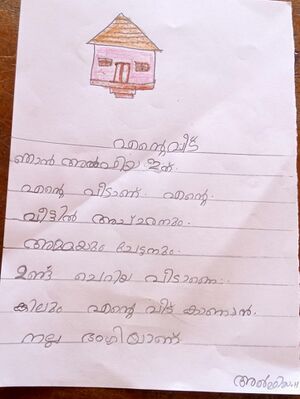 എന്റെ വീട്
ഞാൻ അൽഫിയ ഇത്.
എന്റെ വീടാണ്. എന്റെ.
വീട്ടിൽ അച്ഛനും.
അമ്മയും ചേട്ടനും.
ഉണ്ട് ചെറിയ വീടാണെ-
കിലും എന്റെ വീട് കാണാൻ.
നല്ല ഭംഗിയാണ്
അൽഫിയ.